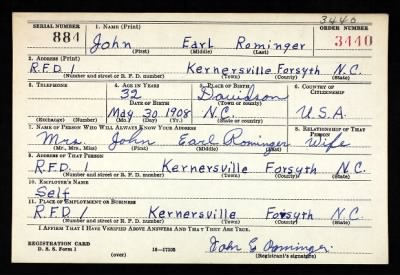 3440
SERIAL NUMBER 1. NAME (Print) ORDER NUMBER
884 John Earl Rominger 3440
(First) (Middle) (Last)
2. ADDRESS (Print)
R.F.D. 1 Kernersville Forsyth N.C.
(Number and street or R. F. D. number) (Town) (County) (State)
3. TELEPHONE 4. AGE IN YEARS 5. PLACE OF BIRTH 6. COUNTRY OF CITIZENSHIP
32 Davidson
DATE OF BIRTH (Town or county)
May 30 1908 N.C. U.S.A.
(Exchange) (Number) (Mo.) (Day) (Yr.) (State or country)
7. NAME OF PERSON WHO WILL ALWAYS KNOW YOUR ADDRESS 8. RELATIONSHIP OF THAT PERSON
Mrs. John Earl Rominger Wife
(Mr., Mrs., Miss) (First) (Middle) (Last)
9. ADDRESS OF THAT PERSON
R.F.D. 1 Kernersville Forsyth N.C.
(Number and street or R. F. D. number) (Town) (County) (State)
10. EMPLOYER'S NAME
Self
11. PLACE OF EMPLOYMENT OR BUSINESS
R.F.D. 1 Kernersville Forsyth N.C.
(Number and street or R. F. D. number) (Town) (County) (State)
I AFFIRM THAT I HAVE VERIFIED ABOVE ANSWERS AND THAT THEY ARE TRUE.
REGISTRATION CARD
D. S. S. Form 1 (over) 16—17105 John E Rominger
(Registrant's signature)